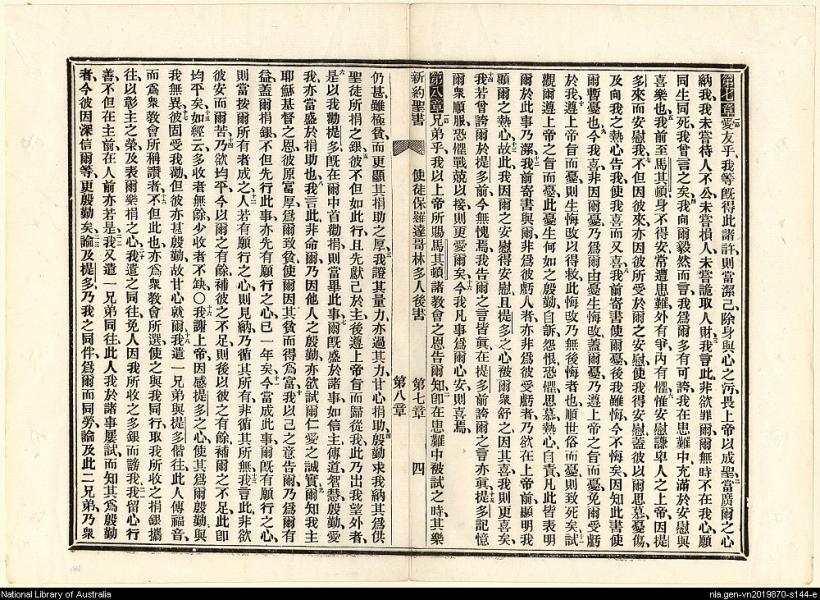 第七章 愛友乎我等旣得此諸許則當潔己除身與心之污畏上帝以成聖當廣爾之心
納我我未嘗待人不公未嘗損人未嘗詭取人財我言此非欲罪爾爾無時不在我心願
同生同死我曾言之矣我向爾毅然而言我爲爾多有可誇我在患難中充滿於安慰與
喜樂也我前至馬其頓身不得安常遭患難外有爭內有懼惟安慰謙卑人之上帝因提
多來而安慰我不但因彼來亦因彼所受於爾之安慰使我得安慰蓋彼以爾思慕憂傷
及向我之熱心告我使我喜而又喜我前寄書使爾憂後我雖悔今不悔矣因知此書使
爾暫憂也今我喜非因爾憂乃爲爾由憂生悔改蓋爾憂乃遵上帝之旨而憂免爾受虧
於我遵上帝旨而憂則生悔改以得救此悔改乃無後悔者也順世俗而憂則致死矣試
觀爾遵上帝之旨而憂此憂生何如之殷勤自訴怨恨恐懼思慕熱心自責凡此皆表明
爾於此事乃潔我前寄書與爾非爲彼虧人者亦非爲彼受虧者乃欲在上帝前顯明我
顧爾之熱心故此我因爾之安慰得安慰且提多之心被爾衆舒之因其喜我則更喜矣
我若曾誇爾於提多前今無愧焉我告爾之言皆眞在提多前誇爾之言亦眞提多記憶
爾衆順服恐懼戰兢以接則更愛爾矣今我凡事爲爾心安則喜焉
第八章 兄弟乎我以上帝所賜馬其頓諸教會之恩告爾知卽在患難中被試之時其樂
新約聖書 使徒保羅達哥林多人後書 第七章 第八章 四
仍甚雖極貧而更顯其捐助之厚我證其量力亦過其力甘心捐助殷勤求我納其爲供
聖徒所捐之銀彼不但如此行且先獻己於主後遵上帝旨而歸從我此乃出我望外者
是以我勸提多旣在爾中首勸捐則當畢此事爾旣盛於諸事如信主傳道智慧殷勤愛
我亦當盛於捐助也我言此非命爾乃因他人之殷勤亦欲試爾仁愛之誠實爾知我主
耶穌基督之恩彼原富厚爲爾致貧使爾因其貧而得爲富我以己之意告爾乃爲爾有
益蓋爾捐銀不但先行此事亦先有願行之心已一年矣今當成此事爾旣有願行之心
則當按爾所有者成之人若有願行之心則見納乃循其所有非循其所無我言此非欲
彼安而爾苦乃欲均平今以爾之有餘補彼之不足則後以彼之有餘補爾之不足此卽
均平矣如經云多收者無餘少收者不缺○我謝上帝因感提多之心使其爲爾殷勤與
我無異彼固受我勸但彼亦甚殷勤故甘心就爾我遣一兄弟與提多偕往此人傳福音
而爲衆教會所稱讚者不但此也亦爲衆教會所選使之與我同行取我所收之捐銀攜
往以彰主之榮及表爾樂捐之心我遣之同往免人因我所收之多銀而謗我我留心行
善不但在主前在人前亦若是我又遣一兄弟同往此人我於諸事屢試而知其爲殷勤
者今彼因深信爾等更殷勤矣論及提多乃我之同伴爲爾而同勞論及此二兄弟乃衆
National Library of Australia
nla.gen-vn2019870-s144-e